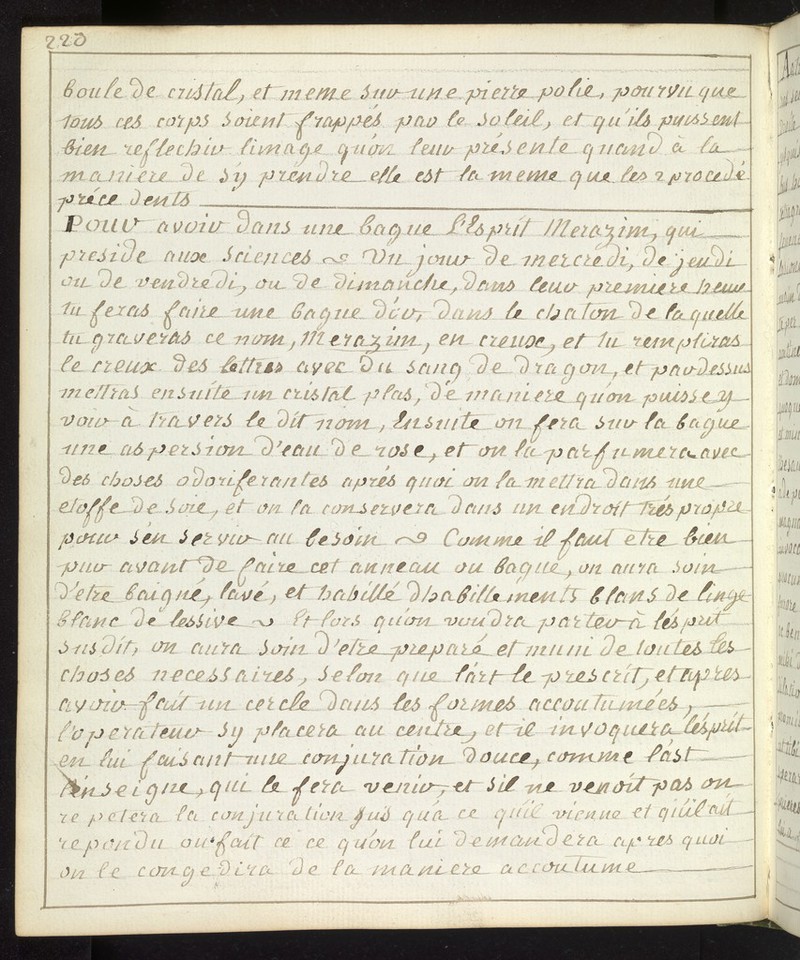 220
boule de cristal, et meme sur une pierre polie, pourvu que
tous ces corps soient frappés par le soleil, et qu'ils puissent
bien reflechir limage quon leur présente quand à la
maniere de sy prendre elle est la meme que les 2 procedé
précedents
Pour avoir dans une bague L'Esprit Merazim, qui
preside aux Sciences Un jour de mercredi, de jeudi
ou de vendredi, ou de dimanche, dans leur premiere heure
tu feras faire une bague d'or, dans le chaton de laquelle
tu graveras ce nom, Merazim, en creux, et tu rempliras
le creux des lettres avec du sang de dragon, et pardessus
mettras ensuite un cristal plas, de maniere quon puisse y
voir à travers le dit nom, Ensuite on fera sur la bague
une aspersion d'eau de rose, et on la parfumera avec
des choses odoriferantes aprés quoi on la mettra dans une
etoffe de soie, et on la conservera dans un endroit trés propre
pour sén servir au besoin Comme il faut etre bien
pur avant de faire cet anneau ou bague, on aura soin
d'etre baigné, lavé, et habillé dhabillements blans de linge
blanc de lessive Et lors quion voudra parler à lésprit
susdit, on aura soin d'etre preparé et muni de toutes les
choses necessaires, selon que lárt le prescrit, et apres
avoir fait un cercle dans les formes accoutumées,
l'operateur sy placera au centre, et il invoquera lésprit
en lui faisant une conjuration douce, comme lást
lénseigne, qui le fera venir, et sil ne venoit pas on
repetera la conjuration jus quá ce quil vienne et quiil ait
repondu ou fait ce ce quon lui demandera apres quoi
on le congedira de la maniere accoutume